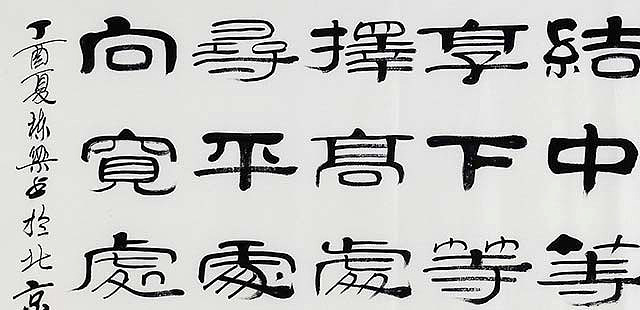 結中等
享下等
擇高處
尋平處
向寬處
丁酉夏陳樂書於北京